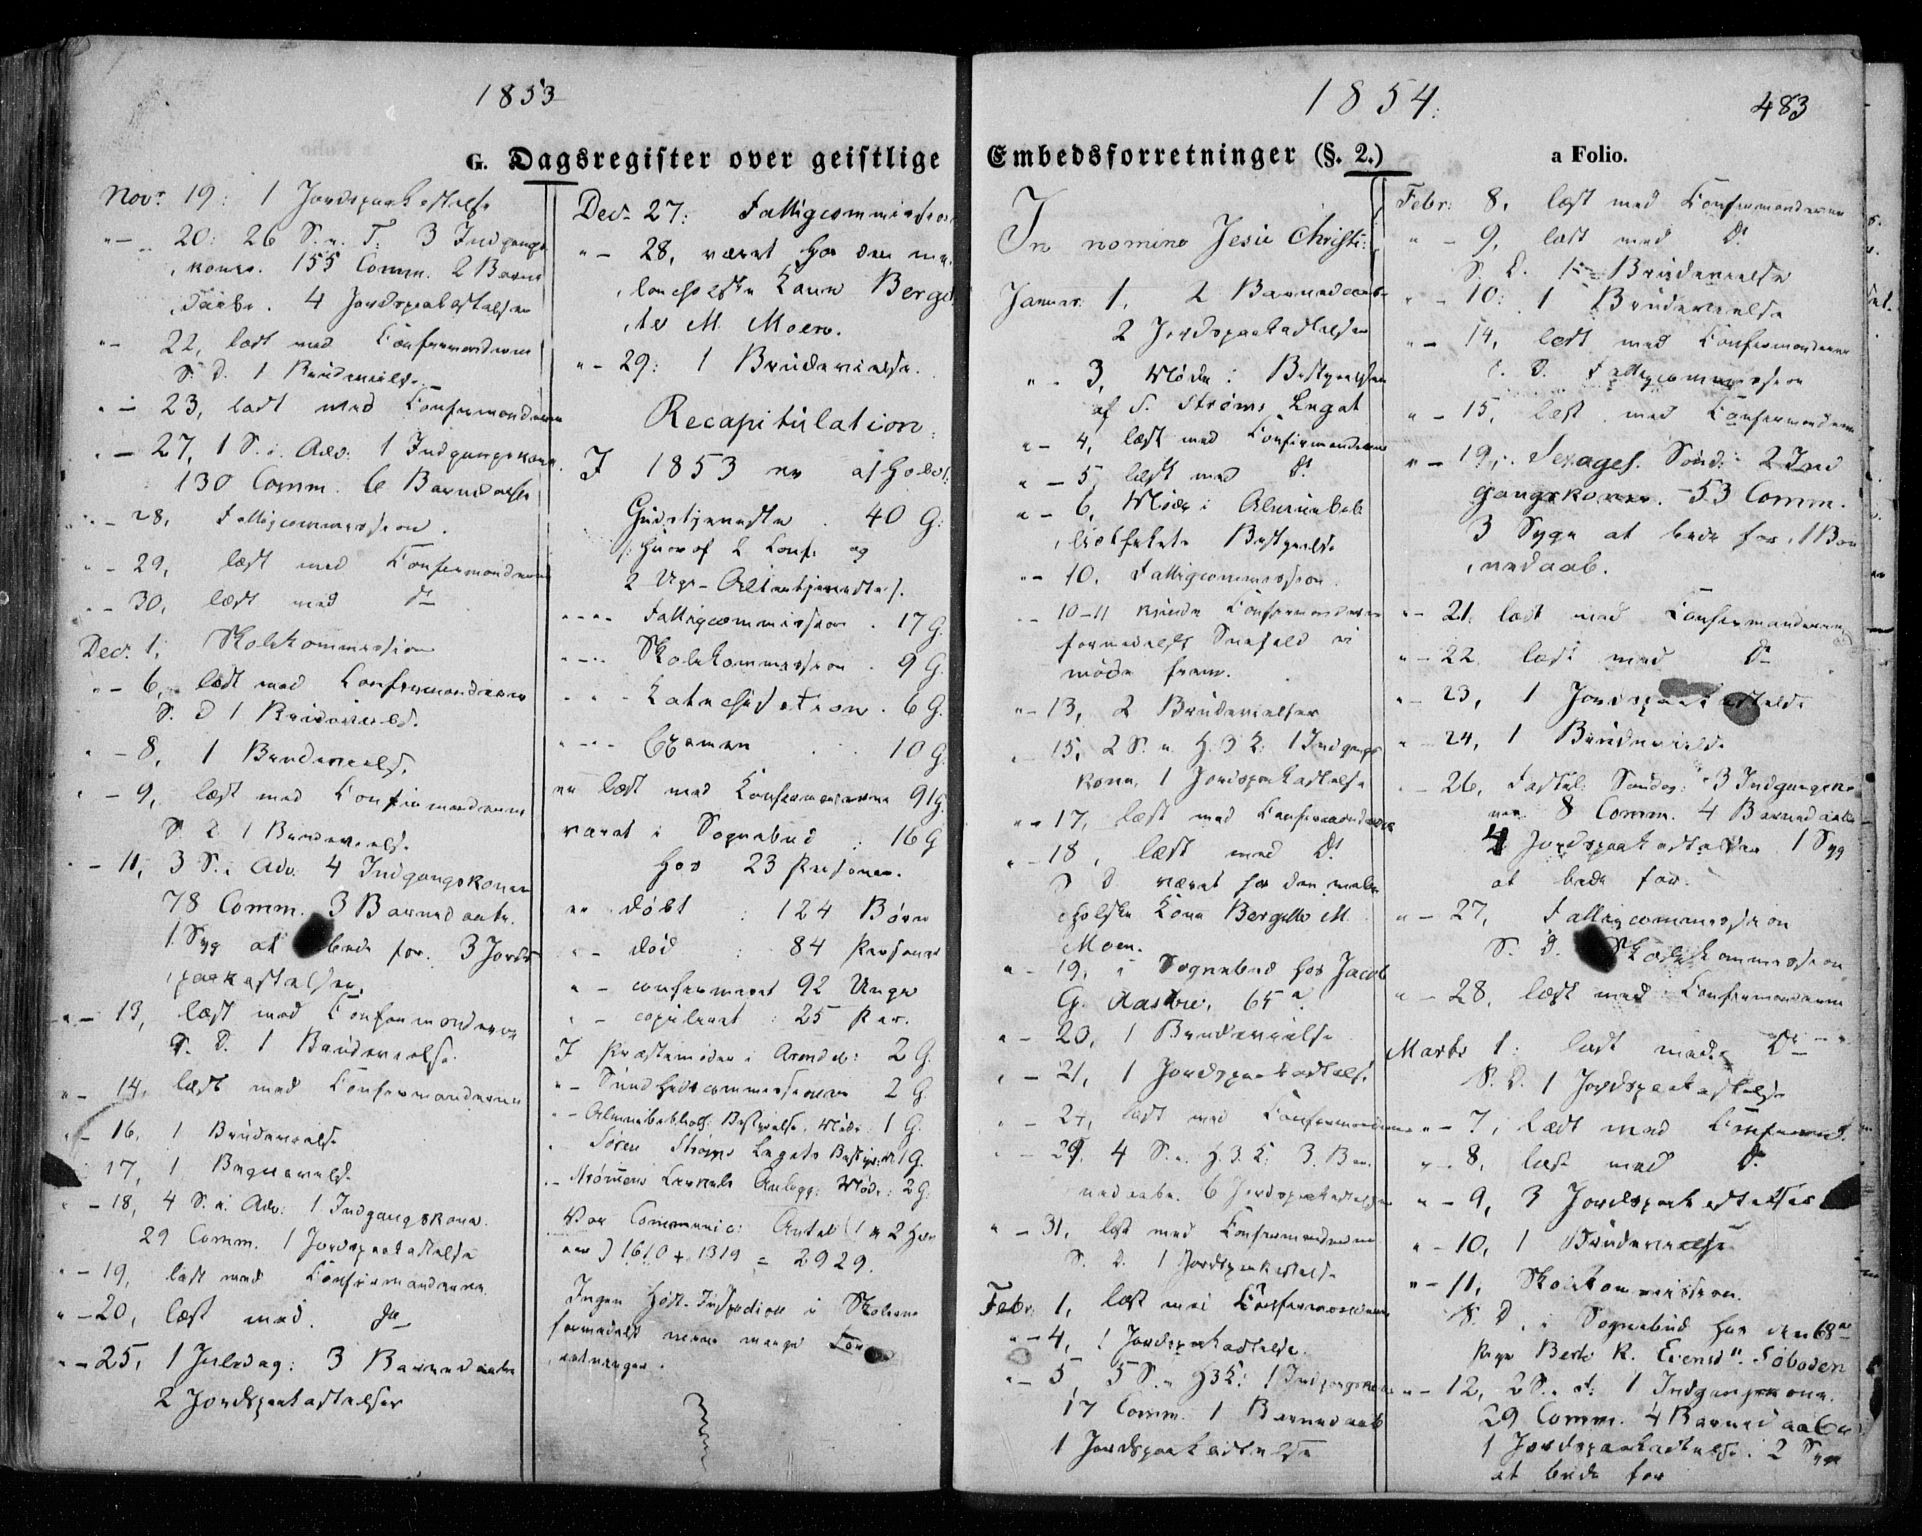 1853
G. Dagsregister over geistlige
Novr 19: 1 Jordspaakastelse
" - 20: 26 S. e. T. 3 Indgangs
koner. 155 Comm. 2 Barne
daabe. 4 Jordspaakastelser
" - 22, læst med Confirmanderne
S. D. 1 Brudevielse
" - 23, læst med Confirmanderne
" - 27, 1 S. i Adv. 1 Indgangskone
130 Comm. 6 Barnedaabe
" - 28, Fattigcommission.
" - 29, læst med Confirmanderne
" - 30, læst med Do
Decr 1, Skolekommission
" - 6, læst med Confirmanderne
S. D. 1 Brudevielse
" - 8, 1 Brudevielse
" - 9, læst med Confirmanderne
S. D. 1 Brudevielse
" - 11, 3 S. i Adv. 4 Indgangskoner
78 Comm. 3 Barnedaabe.
1 Syg at bede for. 3 Jords
paakastelser.
" - 13, læst med Confirmanderne
S. D. 1 Brudevielse.
" - 14, læst med Confirmanderne
" - 16, 1 Brudevielse
17, 1 Brudevielse
" - 18, 4 S. i Adv: 1 Indgangskone.
29 Comm. 1 Jordspaakastelse
" - 19, læst med Confirmanderne
" - 20, læst med Do
" - 25, 1 Juledag: 3 Barnedaabe
2 Jordspaakastelser
Decr 27: Fattigcommission
" - 28, været hos den me
lancholske Kone Berget
M. Moen.
" - 29: 1 Brudevielse.
Recapitulation:
I 1853 er afholdt
Gudstjeneste . 40 G:
/: hvoraf 2 Conf. og
2 Uge-Altertjeneste/.
" " Fattigcommission . 17 G.
" " Skolekommission . 9 G.
" " Katechisation . 6 G.
" " Examen . . 10 G.
er læst med Confirmanderne 91 G.
været i Sognebud : 16 G
hos 23 Personer.
er døbt : 124 Børn
" - død : 84 Personer
" - confirmeret 92 Unge
" - copuleret : 25 Par.
I Præstemøder i Arendal: 2 G.
" - Sundhedscommissionen 2 G.
" - Almuebiblioth. Bestyrelse. Møde: 1 G.
" Søren Strøms Legats Bestyrelse 1 G.
Møde: 2 G.
Var Communic: Antal (1 &amp; 2 Hal
aar) 1610 + 1319 = 2929.
Ingen Høst-Inspection i Skolerne
formedelst mine mange For
retninger.
1854.
483
Embedsforretninger (§. 2.)
a Folio.
In nomine Jesu Christi:
Januar 1, 2 Barnedaabe
2 Jordspaakastelser
" - 3, Møde i Bestyrelsen
af S. Strøms Legat
" - 4, læst med Confirmanderne
" - 5 læst med Do
" - 6, Møde i Almuebib
liothekets Bestyrelse
" - 10, Fattigcommission.
" - 10-11 kunde Confirmanderne
formedelst Snefald ei
møde frem.
" - 13, 2 Brudevielser
" 15, 2 S. e. H. 3 K: 1 Indgangs
kone, 1 Jordspaakastelse
" - 17, læst med Confirmanderne
" - 18, læst med Do
S. D. været hos den melan
cholske Kone Bergitte M.
Moen.
" - 19, i Sognebud hos Jacob
G. 65 a.
" - 20, 1 Brudevielse
" - 21, 1 Jordspaakastelse
" - 24, læst med Confirmanderne
" - 29, 4 S. e. H. 3 K: 3 Bar
nedaabe. 6 Jordspaakastelser
" - 31, læst med Confirmanderne
S. D. 1 Jordspaakastelse
Febr: 1, læst med Confirmanderne
" - 4, 1 Jordspaakastelse.
" - 5 5 S. e. H 3 K: 1 Indgangskone
17 Comm. 1 Barnedaab
1 Jordspaakastelse
Febr: 8, læst med Confirmanderne
" - 9, læst med Do
S. D. 1 Brudevielse
" - 10: 1 Brudevielse
" - 14, læst med Confirmanderne
S. D. Fattigcommission
" - 15, læst med Confirmanderne
" - 19, Sexages. Sønd: 2 Ind
gangskoner. 53 Comm.
3 Syge at bede for, 1 Bar
nedaab.
" - 21, læst med Confirmanderne
" - 22, læst med Do
" - 23, 1 Jordspaakastelse
" - 24, 1 Brudevielse
" - 26, Fastel. Søndag: 3 Indgangsko
ner 8 Comm. 4 Barnedaabe
4 Jordspaakastelser 1 Syg
at bede for.
" - 27, Fattigcommission
S. D. Skolekommission
" - 28, læst med Confirmanderne
Marts 1: læst med Do
S. D. 1 Jordspaakastelse
" - 7, læst med Confirmand.
" - 8, læst med Do
" - 9, 3 Jordspaakastelser
" - 10, 1 Brudevielse
" - 11, Skolekommission.
S. D. i Sognebud hos den 68 ar
Pige Berte K. Eivindsd. Søboden
" - 12, 2 S. i F: 1 Indgangskone.
29 Comm. 4 Barnedaabe
1 Jordspaakastelse. 2 Syge
at bede for